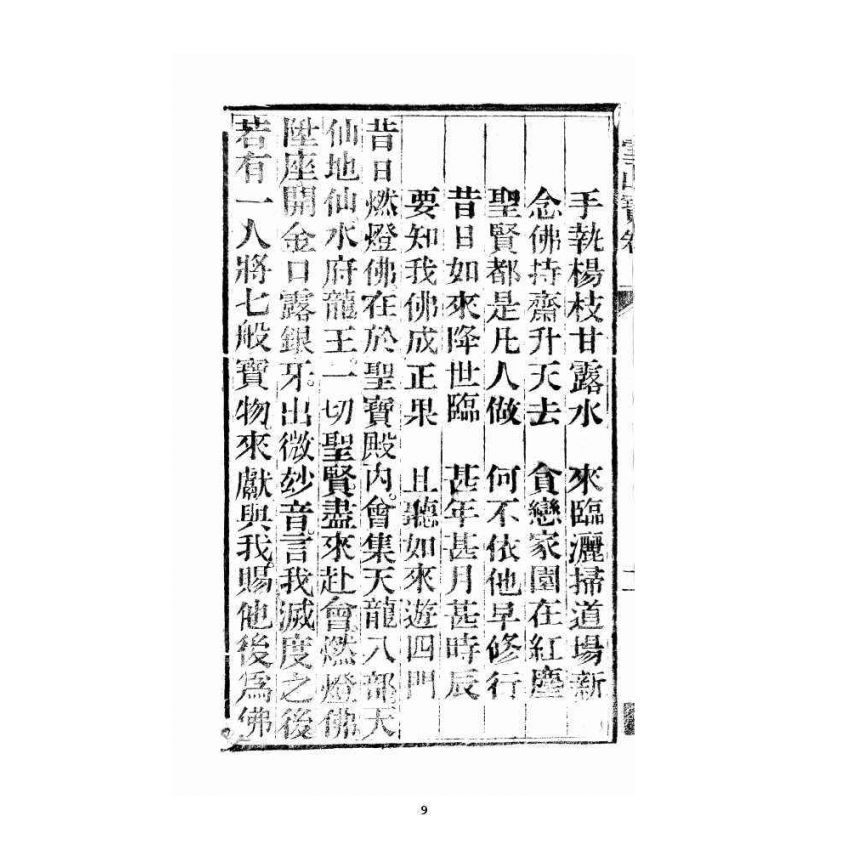 雪山寶卷
手執楊枝甘露水　來臨灑掃道場新
念佛持齋升天去　貪戀家園在紅塵
聖賢都是凡人做　何不依他早修行
昔日如來降世臨　甚年甚月甚時辰
要知我佛成正果　且聽如來遊四門
昔日燃燈佛在於聖寶殿內。會集天龍八部天
仙地仙水府龍王。一切聖賢。盡來赴會。燃燈佛
陞座開金口露銀牙。出微妙音。言我滅度之後
若有一人將七般寶物來獻與我。賜他後為佛
9